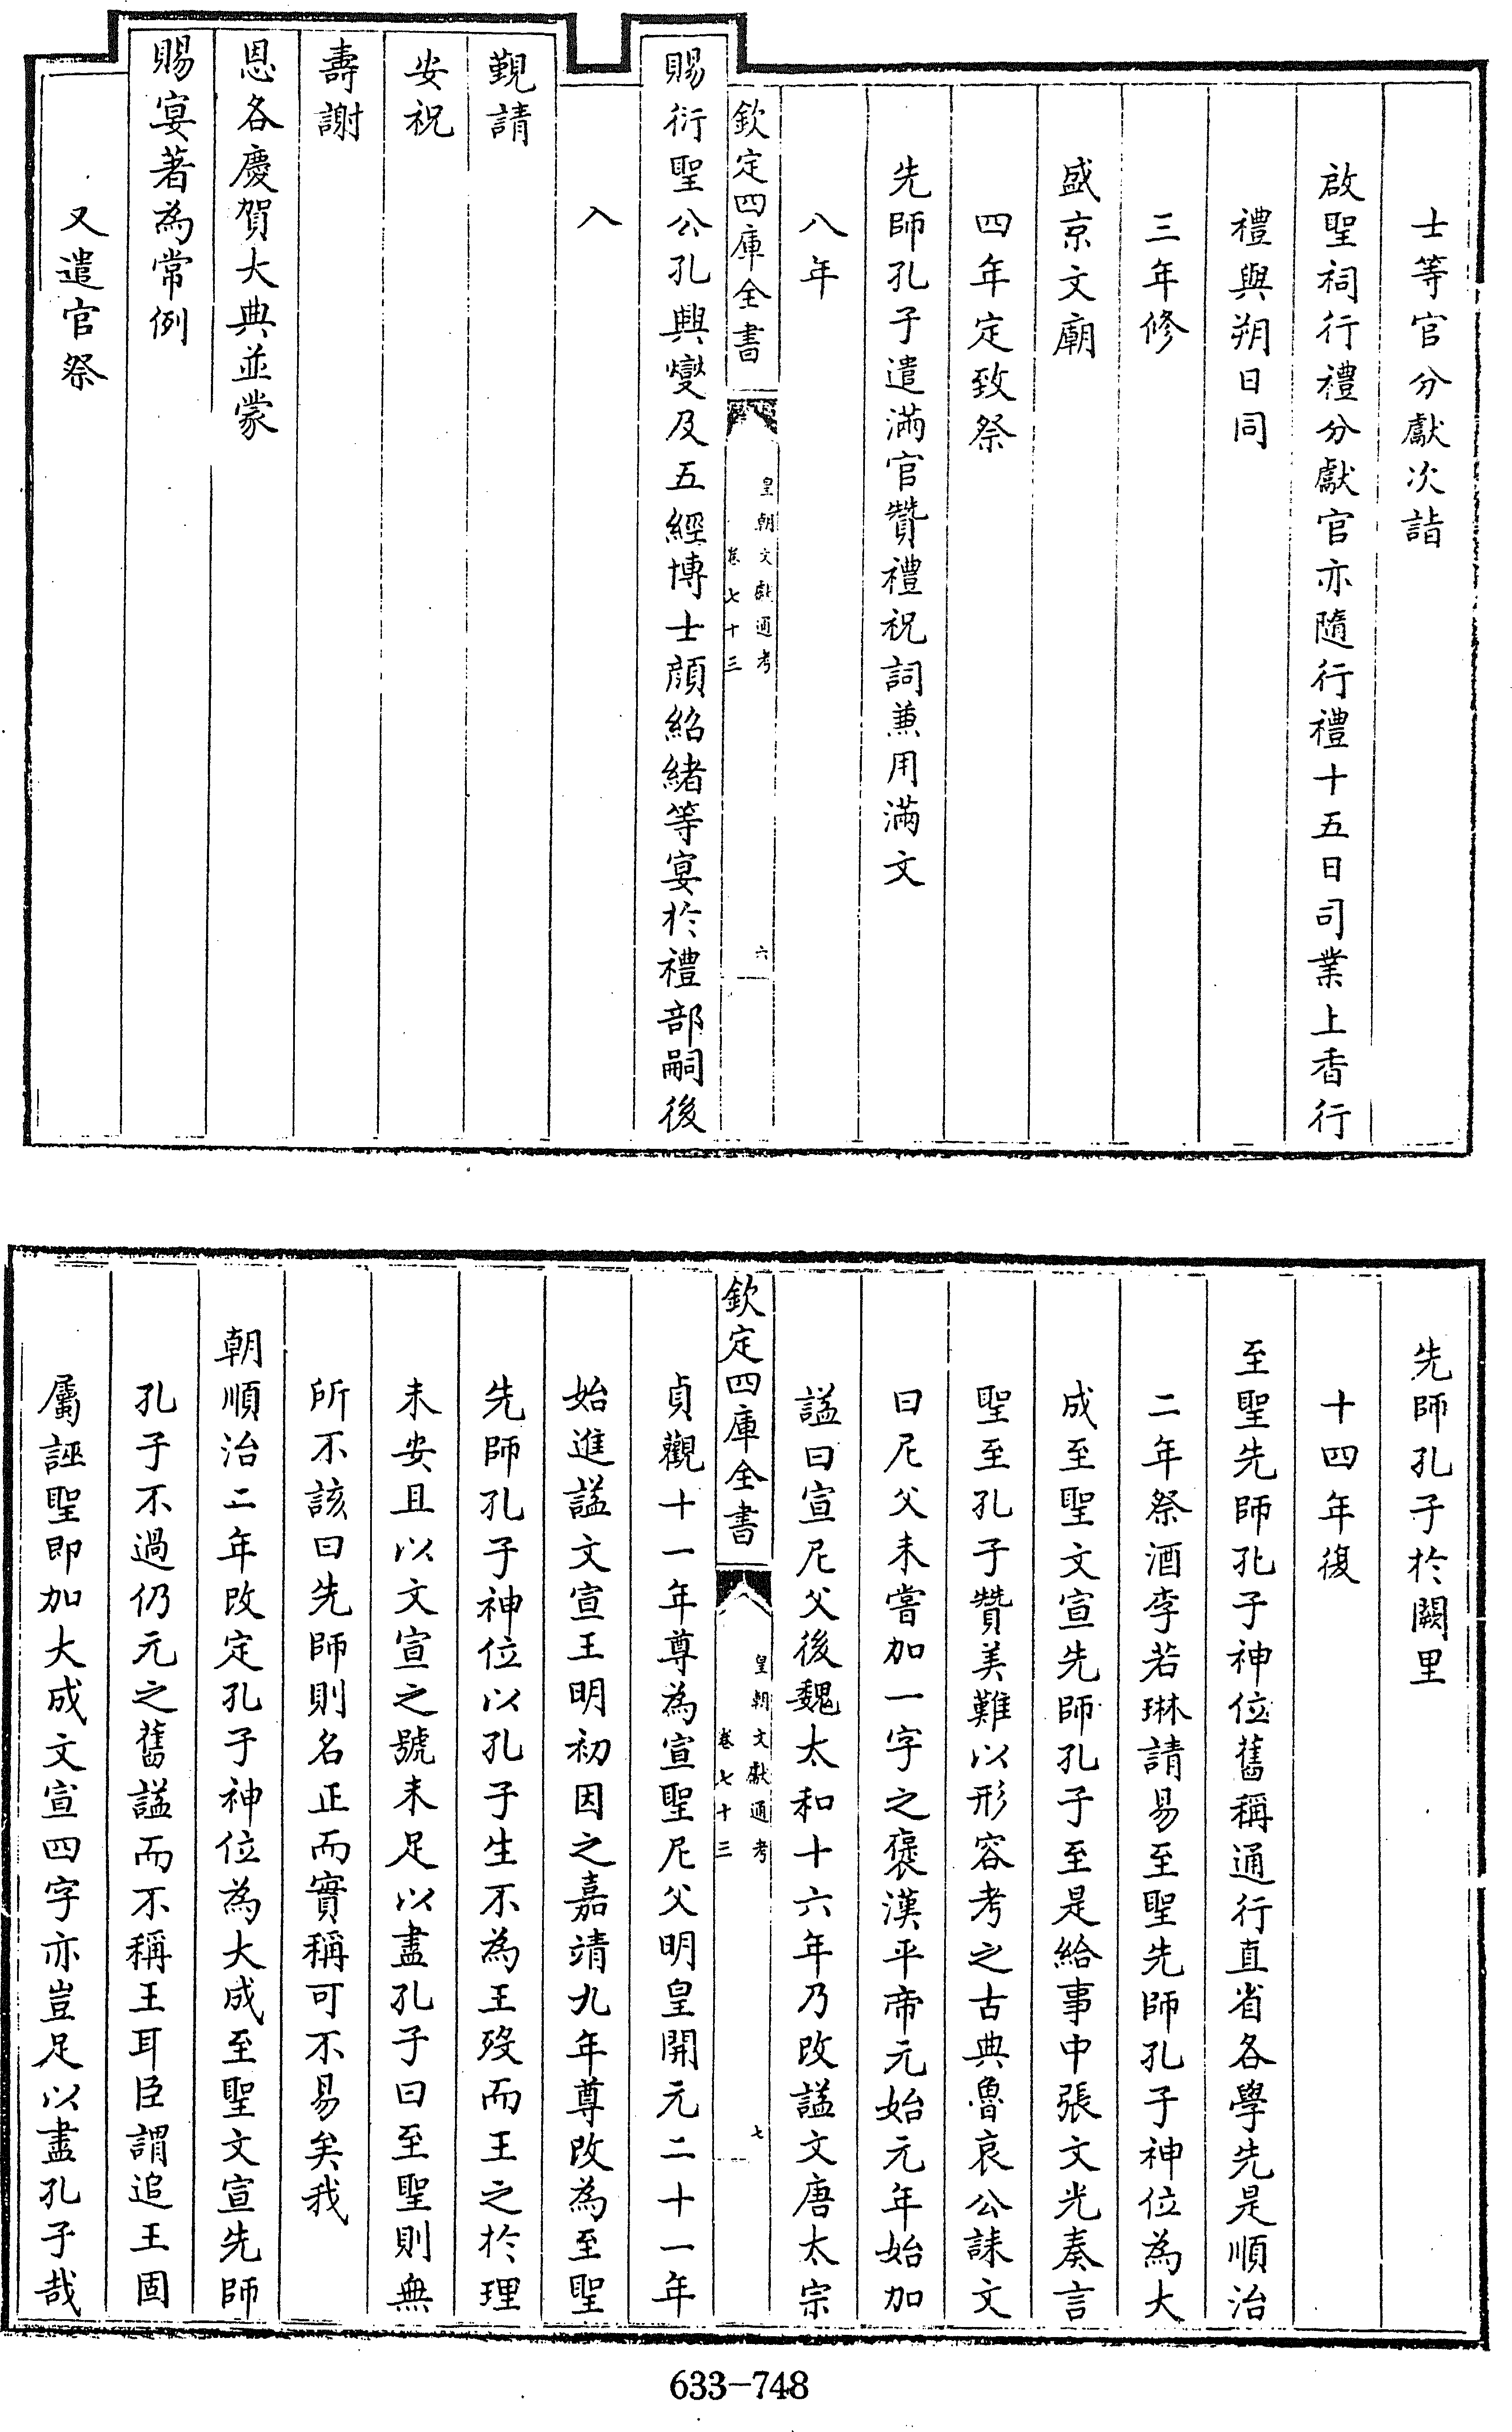 士等官分獻次詣
啟聖祠行禮分獻官亦隨行禮十五日司業上香行
禮與朔日同
三年修
盛京文廟
四年定致祭
先師孔子遣滿官贊禮祝詞兼用滿文
八年
欽定四庫全書
皇朝文獻通考
卷七十三
六
賜衍聖公孔興燮及五經博士顔紹緒等宴於禮部嗣後
入
覲請
安祝
壽謝
恩各慶賀大典並蒙
賜宴著為常例
又遣官祭
先師孔子於闕里
十四年復
至聖先師孔子神位舊稱通行直省各學先是順治
二年祭酒李若琳請易至聖先師孔子神位為大
成至聖文宣先師孔子至是給事中張文光奏言
聖至孔子贊美難以形容考之古典魯哀公誄文
曰尼父未嘗加一字之褒漢平帝元始元年始加
諡曰宣尼父後魏太和十六年乃改諡文唐太宗
欽定四庫全書
皇朝文獻通考
卷七十三
七
貞觀十一年尊為宣聖尼父明皇開元二十一年
始進諡文宣王明初因之嘉靖九年尊改為至聖
先師孔子神位以孔子生不為王歿而王之於理
未安且以文宣之號未足以盡孔子曰至聖則無
所不該曰先師則名正而實稱可不易矣我
朝順治二年改定孔子神位為大成至聖文宣先師
孔子不過仍元之舊諡而不稱王耳臣謂追王固
屬誣聖即加大成文宣四字亦豈足以盡孔子哉
633-748